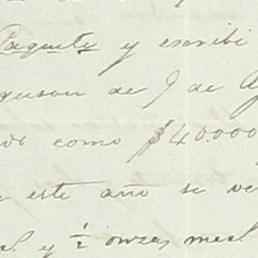 Paquete y escribi
de 9 de Ag
como $40.000
este año se ve
y ½ onzas mens.